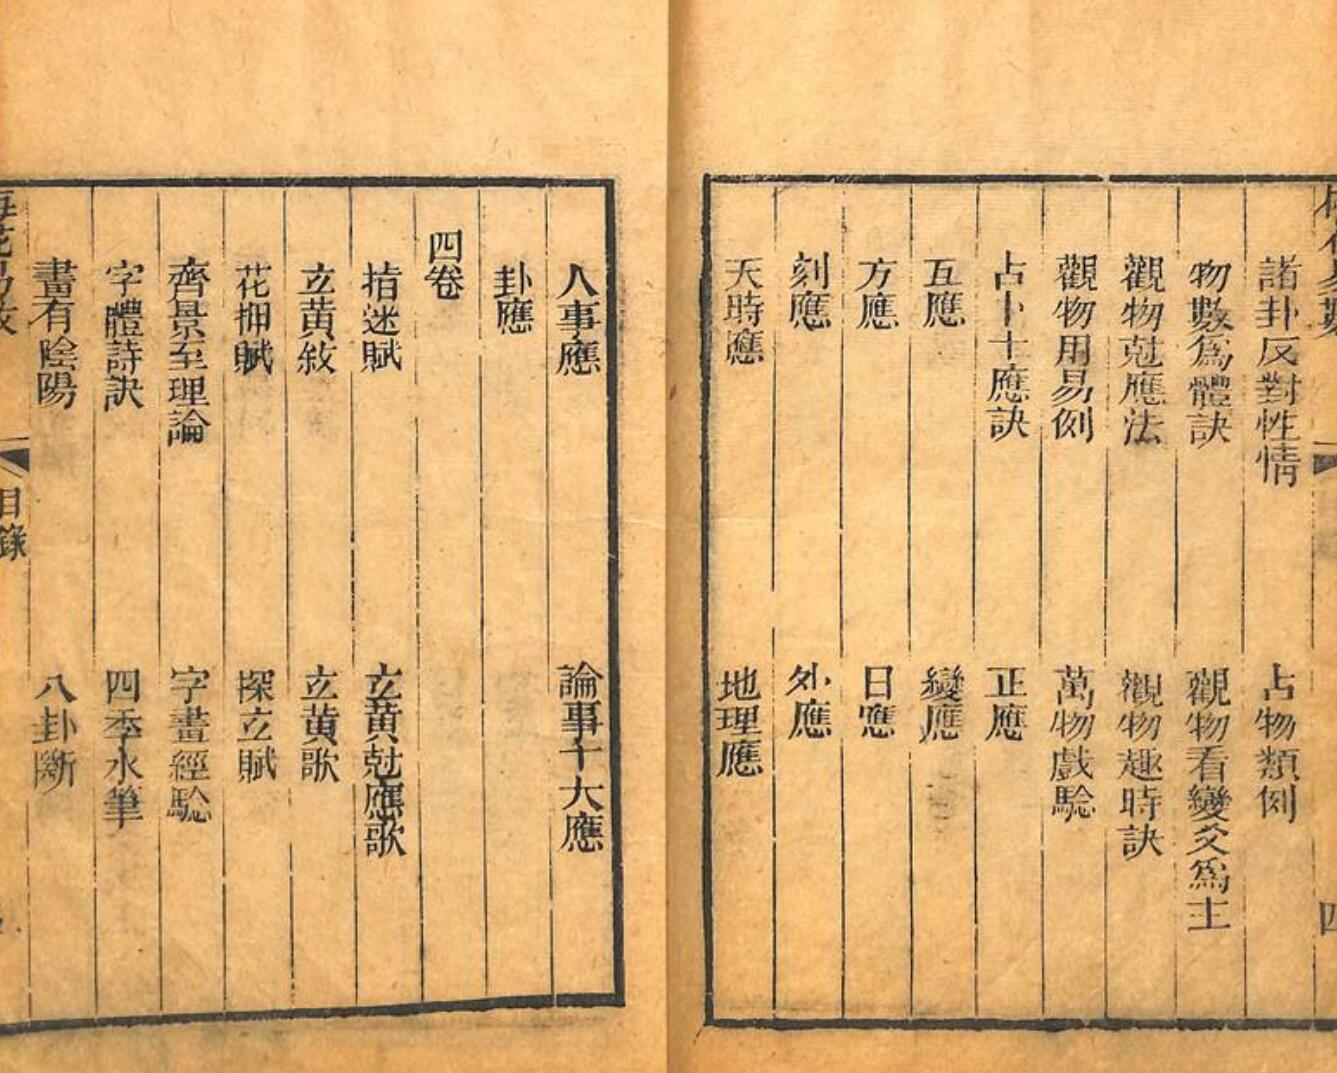 諸卦反對性情　占物類例
物數爲體訣　觀物看變爻爲主
觀物尅應法　觀物趣時訣
觀物用易例　萬物戲騐
占卜十應訣　正應
互應　變應
方應　日應
刻應　外應
天時應　地理應
人事應　論事十大應
卦應
四卷
指迷賦　玄黃尅應歌
玄黃敘　玄黃歌
花押賦　探玄賦
齊景至理論　字畫經騐
字體詩訣　四季水筆
畫有陰陽　八卦斷
目錄